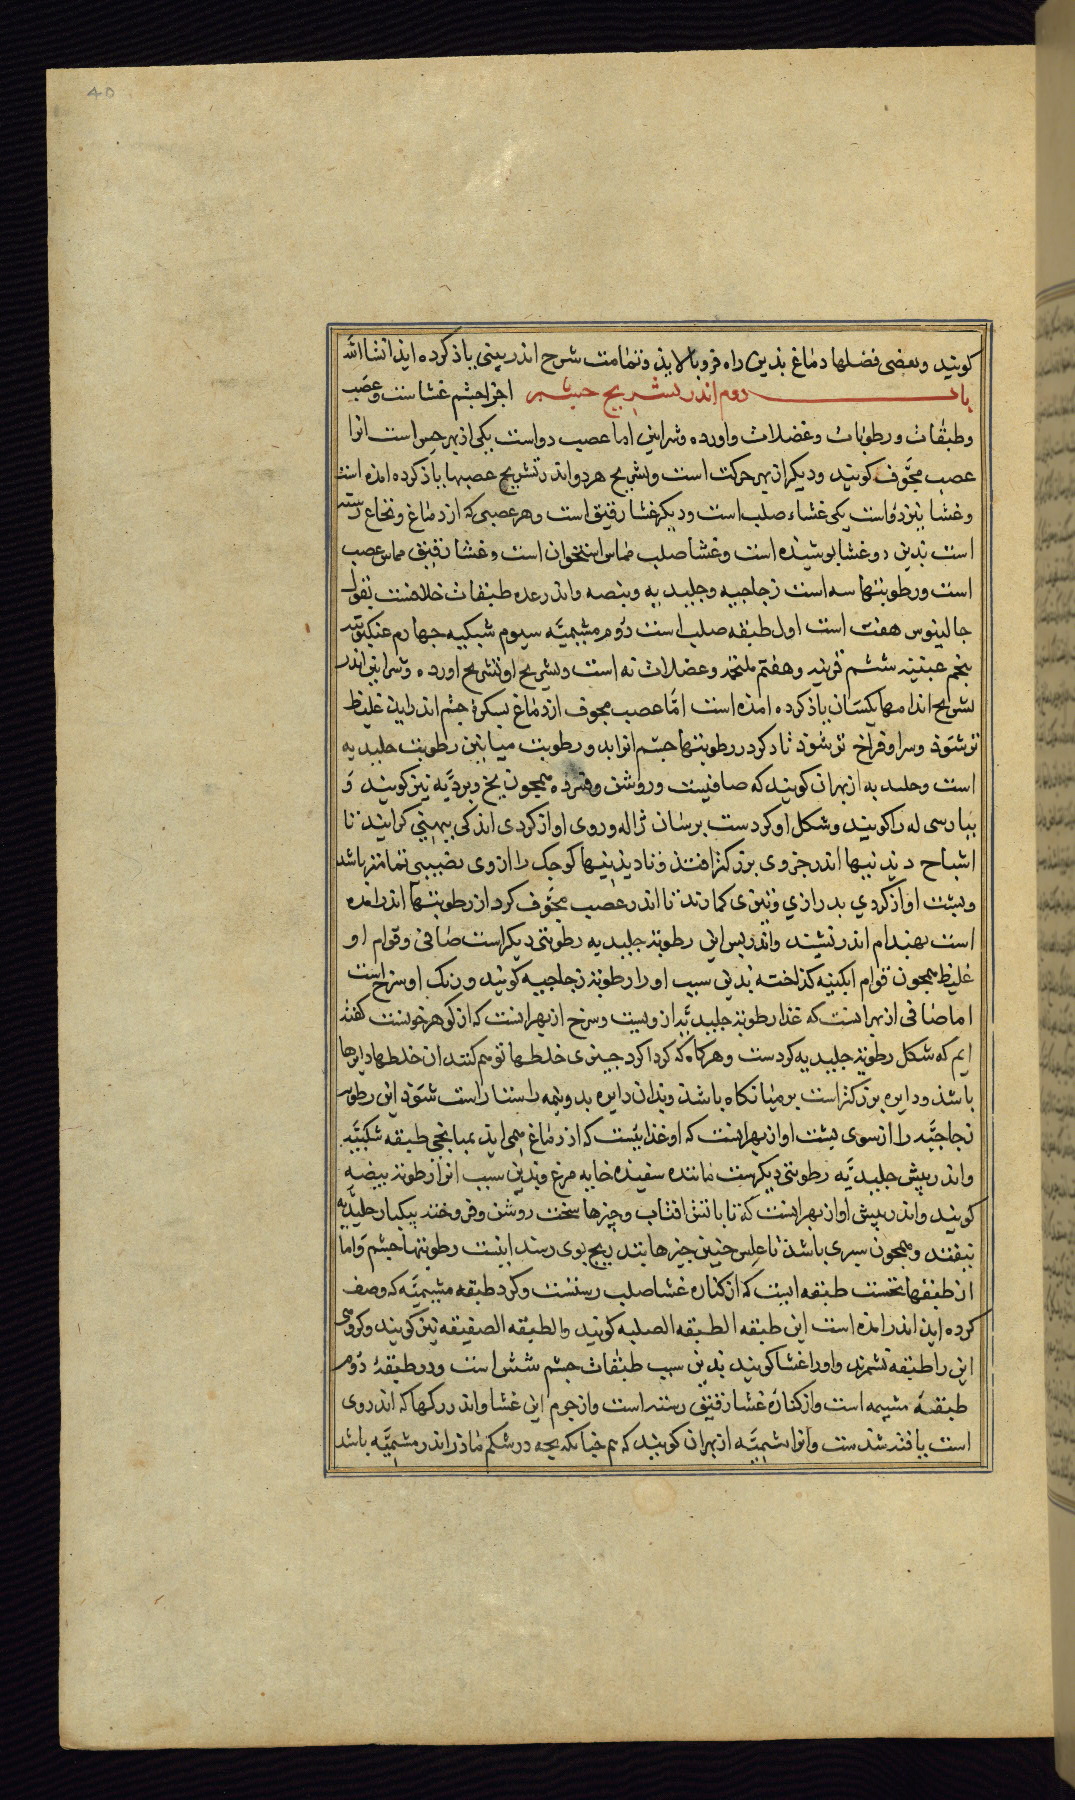 ۴۵
کویند وبعضی فضلها دماغ بذین راه فروبالاید وتمامت شرح اندر بینی یاذ کرده ایذ انشاالله
باب دوم اندر تشریح چشم اجزا چشم غشاست وعصب
وطبقات ورطوبات وعضلات واورده وشرایین اما عصب دواست یکی از بهر حس است انرا
عصب مجوف کویند ودیکر از بهر حرکت است وتشریح هردو اندر تشریح عصبها یاذ کرده امذه است
وغشا نیز دواست یکی غشاء صلب است ودیکر غشا رقیق است وهر عصبی که از دماغ ونخاع رسته
است بذین دو غشا پوشیذه است وغشا صلب مماس استخوان است وغشا رقیق مماس عصب
است ورطوبتها سه است زجاجیه وجلیدیه وبیضه واندر عدد طبقات خلافست بقول
جالینوس هفت است اول طبقه صلب است دوم مشیمیه سیوم شبکیه چهارم عنکبوتیه
پنجم عنبیه ششم قرنیه وهفتم ملتحمه وعضلات نه است وتشریح او تشریح اورده وشرایین اندر
تشریح اندامها یکسان یاذ کرده امذه است اما عصب مجوف از دماغ بسکره چشم اندراید غلیظ
تر شوذ وسر او فراخ تر شوذ تا کرد رطوبتها چشم اندراید ورطوبت میانین رطوبت جلیدیه
است وجلیدیه از بهر ان کویند که صافیست وروشن وفسرده همچون یخ وبردیه نیز کویند و
بپارسی ژاله را کویند وشکل او کردست برسان ژاله وروی او از کردی اندکی بپهنی کراید تا
اشباح دیدنیها اندر جزوی بزرکتر افتذ وتا دیدنیها کوچک را از وی نصیبی تمامتر باشد
وپشت او از کردی بدرازی وتیزی کمارند تا اندر عصب مجوف کرد از رطوبتها اندرامده
است بهندام اندر نشیند واندر پس این رطوبة جلیدیه رطوبتی دیکراست صافی وقوام او
غلیظ همچون قوام ابکینه کداخته بدین سبب او را رطوبة زجاجیه کویند ورنک او سرخ است
اما صافی از بهر انست که غذا رطوبة جلیدیه از ویست وسرخ از بهر انست که از کوهر خونست کفته
ایم که شکل رطوبة جلیدیه کردست وهرکاه که کرداکرد چیزی خطها توهم کنند ان خطها دایرها
باشذ ودایره بزرکتر است بر میانکاه باشذ وبذان دایره بدونیمه راستاراست شوذ این رطوبه
زجاجیه را از سوی پشت او از بهر انست که او غذاییست که از دماغ همی اید بمیانجی طبقه شبکیه
واندر پیش جلیدیه رطوبتی دیکرست ماننده سفیده خایه مرغ وبذین سبب انرا رطوبة بیضیه
کویند واندر پیش او از بهر انست که تا تابش افتاب وچیزها سخت روشن وفروخته بیکبار جلیدیه
نیفتد وهمچون سپری باشذ تا عکس چنین چیزها بتدریج بوی رسد اینست رطوبتها چشم واما
از طبقها نخست طبقه انست که از کناره غشا صلب رستست وکرد طبقه مشیمیه که وصف
کرده ایذ اندرامذه است این طبقه الطبقه الصلبه کویند والطبقه الصفیقه نیز کویند وکروهی
این را طبقه نشمرند واورا غشا کویند بدین سبب طبقات چشم شش است ودو طبقه دوم
طبقه مشیمه است واز کناره غشا رقیق رسته است واز جرم این غشا واندر رکها که اندروی
است بافته شذست وانرا مشیمیه از بهر ان کویند که هم چنانکه بچه در شکم ماذر اندر مشیمیه باشد